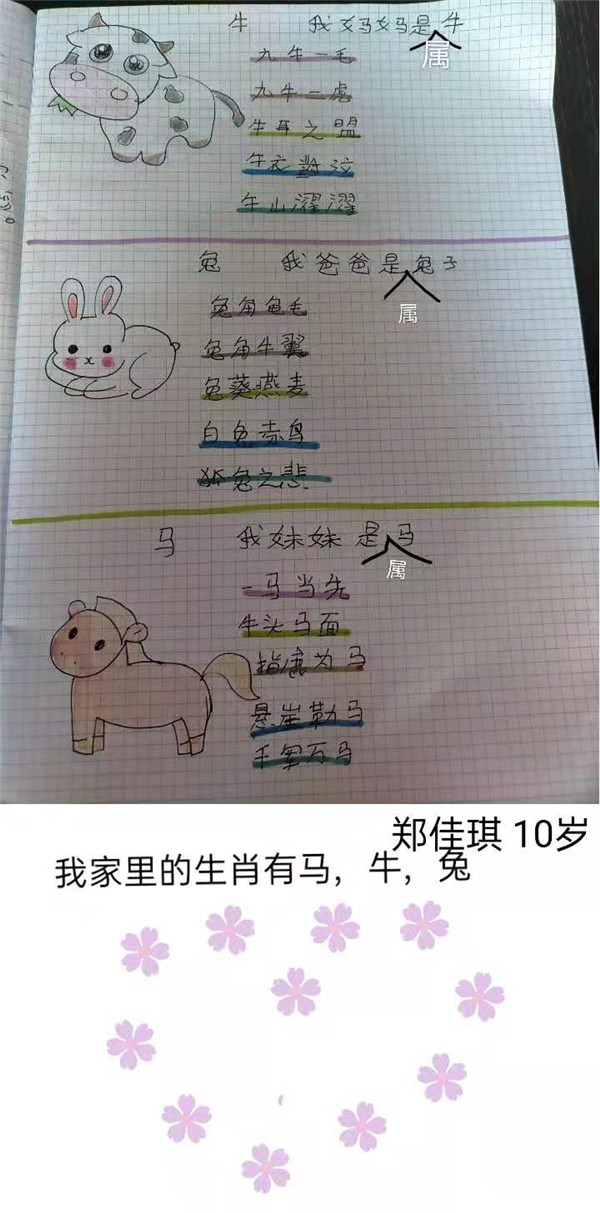 牛 我妈妈是牛
属
九牛一毛
九牛一虎
牛耳之盟
牛衣對泣
牛山濯濯
兔 我爸爸是兔子
属
兔角龟毛
兔角牛翼
兔葵燕麦
白兔赤鸟
狐兔之悲
马 我妹妹是马
属
一马当先
牛头马面
指鹿为马
悬崖勒马
千军万马
郑佳琪 10岁
我家里的生肖有马，牛，兔